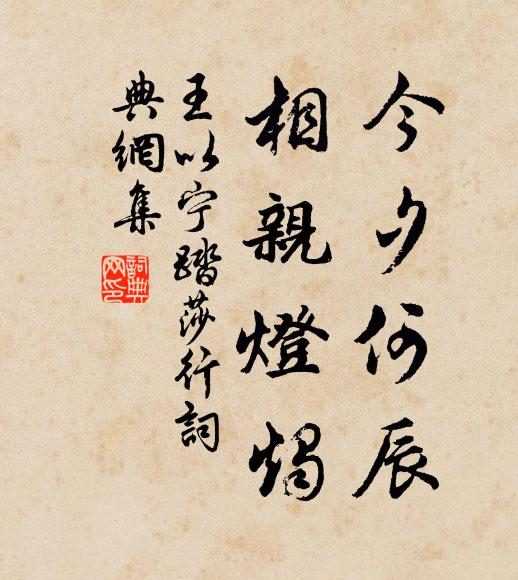 今夕何辰
相親燈燭
王以宁踏莎行詞
典網集
詞典網印